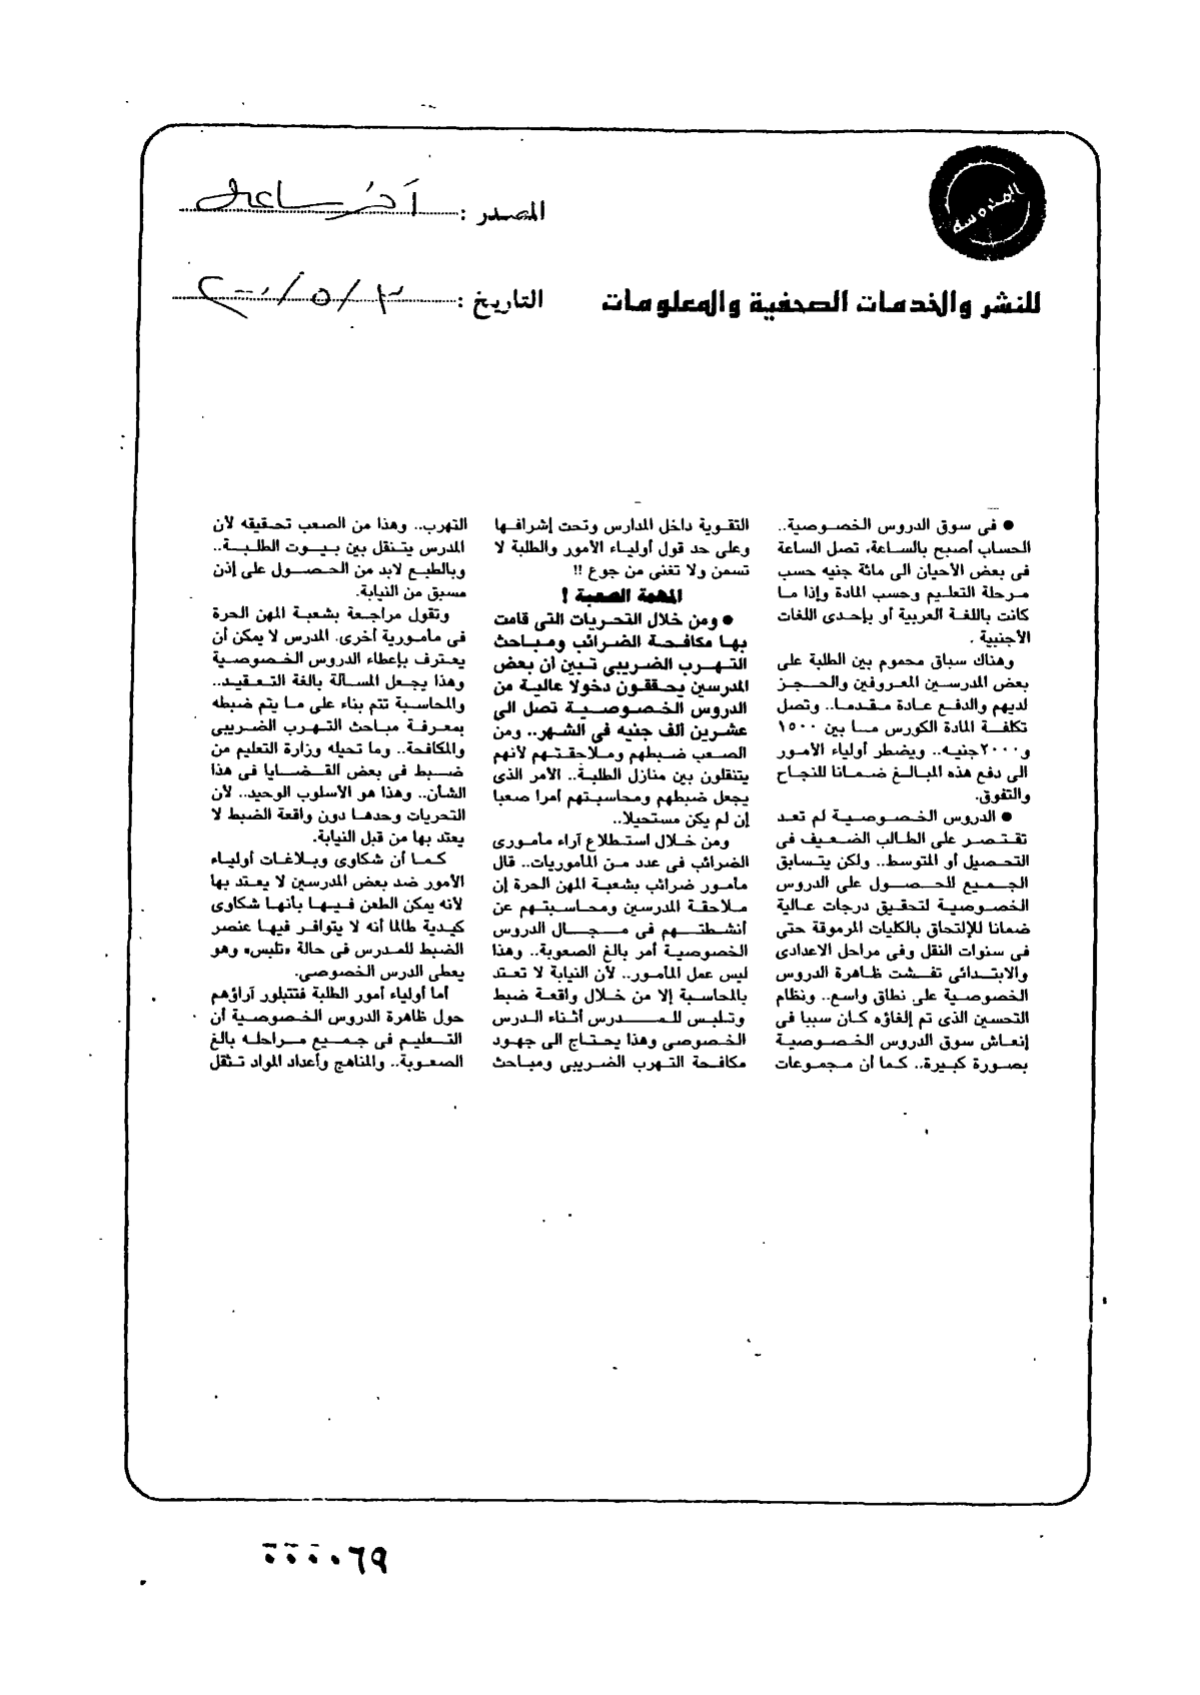 المدروسة
المصدر : آخر ساعة
للنشر والخدمات الصحفية والمعلومات
التاريخ :
● فى سوق الدروس الخصوصية..
الحساب أصبح بالساعة، تصل الساعة
فى بعض الأحيان الى مائة جنيه حسب
مرحلة التعليم وحسب المادة وإذا ما
كانت باللغة العربية أو بإحدى اللغات
الأجنبية .
وهناك سباق محموم بين الطلبة على
بعض المدرسين المعروفين والحجز
لديهم والدفع عادة مقدما.. وتصل
تكلفة المادة الكورس ما بين ١٥٠٠
و٢٠٠٠جنيه.. ويضطر أولياء الأمور
الى دفع هذه المبالغ ضمانا للنجاح
والتفوق.
● الدروس الخصوصية لم تعد
تقتصر على الطالب الضعيف فى
التحصيل أو المتوسط.. ولكن يتسابق
الجميع للحصول على الدروس
الخصوصية لتحقيق درجات عالية
ضمانا للإلتحاق بالكليات المرموقة حتى
فى سنوات النقل وفى مراحل الاعدادى
والابتدائى تفشت ظاهرة الدروس
الخصوصية على نطاق واسع.. ونظام
التحسين الذى تم إلغاؤه كان سببا فى
إنعاش سوق الدروس الخصوصية
بصورة كبيرة.. كما أن مجموعات
التقوية داخل المدارس وتحت إشرافها
وعلى حد قول أولياء الأمور والطلبة لا
تسمن ولا تغنى من جوع !!
المهمة الصعبة !
● ومن خلال التحريات التى قامت
بها مكافحة الضرائب ومباحث
التهرب الضريبى تبين أن بعض
المدرسين يحققون دخولا عالية من
الدروس الخصوصية تصل الى
عشرين ألف جنيه فى الشهر.. ومن
الصعب ضبطهم وملاحقتهم لأنهم
يتنقلون بين منازل الطلبة.. الأمر الذى
يجعل ضبطهم ومحاسبتهم أمرا صعبا
إن لم يكن مستحيلا..
ومن خلال استطلاع آراء مأمورى
الضرائب فى عدد من المأموريات.. قال
مأمور ضرائب بشعبة المهن الحرة إن
ملاحقة المدرسين ومحاسبتهم عن
أنشطتهم فى مجال الدروس
الخصوصية أمر بالغ الصعوبة.. وهذا
ليس عمل المأمور.. لأن النيابة لا تعتد
بالمحاسبة إلا من خلال واقعة ضبط
وتلبس للمدرس أثناء الدرس
الخصوصى وهذا يحتاج الى جهود
مكافحة التهرب الضريبى ومباحث
التهرب.. وهذا من الصعب تحقيقه لأن
المدرس يتنقل بين بيوت الطلبة..
وبالطبع لابد من الحصول على إذن
مسبق من النيابة.
وتقول مراجعة بشعبة المهن الحرة
فى مأمورية أخرى. المدرس لا يمكن أن
يعترف بإعطاء الدروس الخصوصية
وهذا يجعل المسألة بالغة التعقيد..
والمحاسبة تتم بناء على ما يتم ضبطه
بمعرفة مباحث التهرب الضريبى
والمكافحة.. وما تحيله وزارة التعليم من
ضبط فى بعض القضايا فى هذا
الشأن.. وهذا هو الأسلوب الوحيد.. لأن
التحريات وحدها دون واقعة الضبط لا
يعتد بها من قبل النيابة.
كما أن شكاوى وبلاغات أولياء
الأمور ضد بعض المدرسين لا يعتد بها
لأنه يمكن الطعن فيها بأنها شكاوى
كيدية طالما أنه لا يتوافر فيها عنصر
الضبط للمدرس فى حالة «تلبس» وهو
يعطى الدرس الخصوصى.
أما أولياء أمور الطلبة فتتبلور آراؤهم
حول ظاهرة الدروس الخصوصية أن
التعليم فى جميع مراحله بالغ
الصعوبة.. والمناهج وأعداد المواد تثقل
٠٠٠٠٦٩